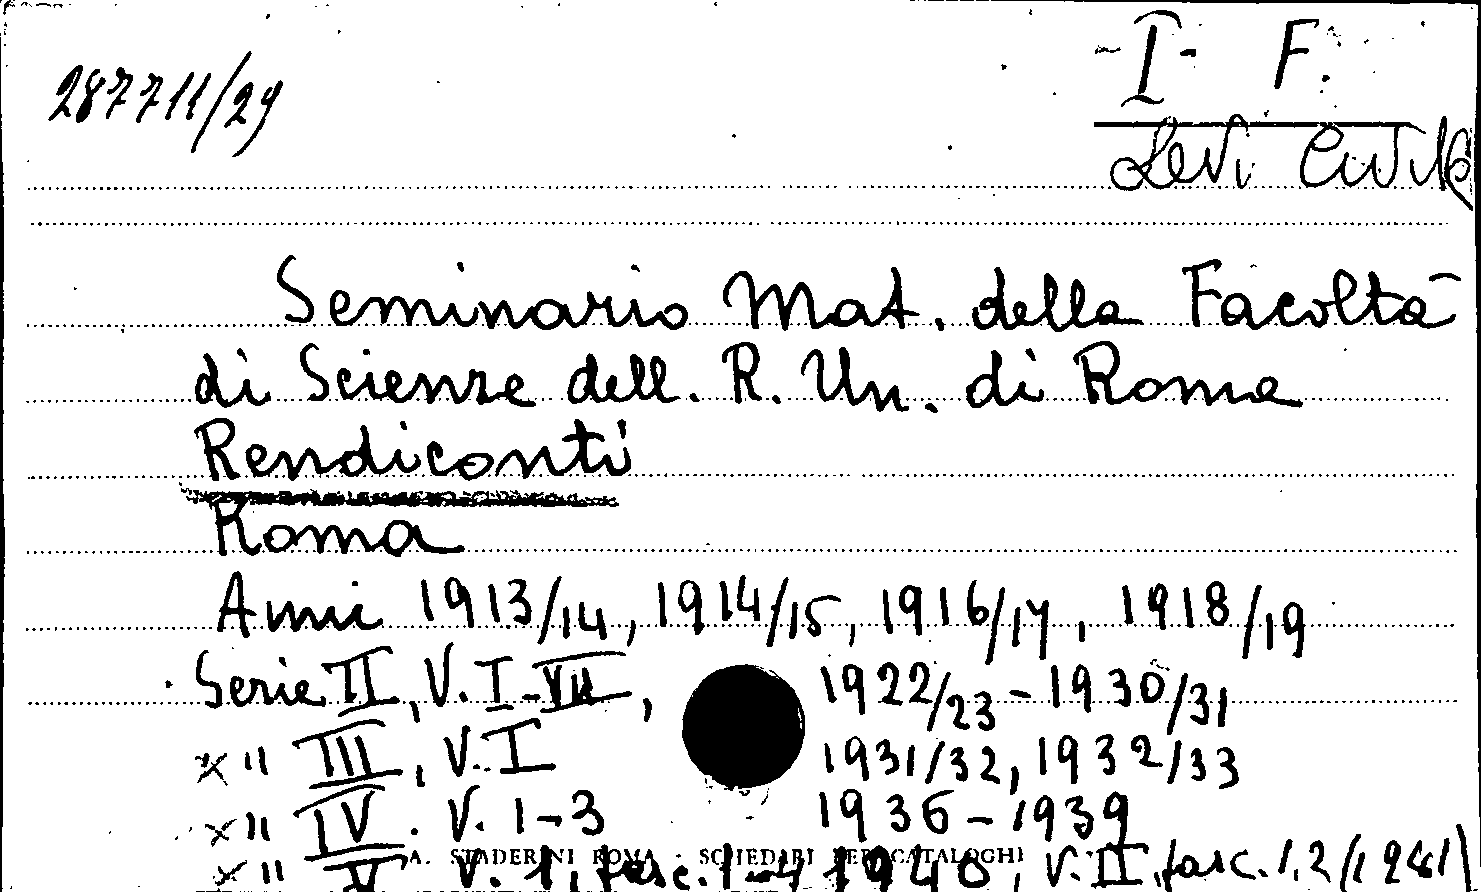 -I- F.
287711/29
Levi Civita
Seminario Mat. della Facoltà
di Scienze dell. R. Un. di Roma
Rendiconti
Roma
Anni 1913/14, 1914/15, 1916/17, 1918/19
Serie II, V. I-VII, 1922/23 - 1930/31
x " III, V. I 1931/32, 1932/33
x " IV. V. 1-3 1936-1939
x " V V. 1, fasc. 1-4 1940, V. II, fasc. 1, 2 (1941)
A. STADERINI ROMA - SCHEDARI PER CATALOGHI